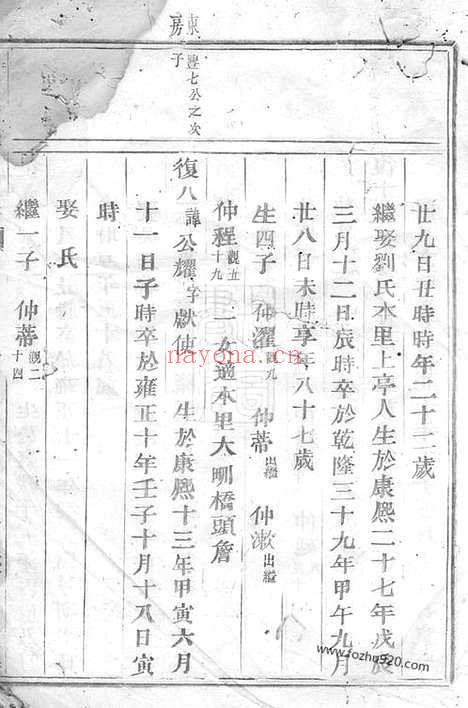 廿九日丑時時年二十二歲
繼娶劉氏本里上亭人生於康熙二十七年戊辰
三月十二日辰時卒於乾隆三十九年甲午九月
廿八日未時享年八十七歲
生四子 仲濯觀九 仲蒂出繼 仲漱出繼
仲程觀五十九 一女適本里大明橋頭詹
復八諱公耀字獻使 生於康熙十三年甲寅六月
十一日子時卒於雍正十年壬子十月十八日寅
時
娶 氏
繼一子 仲蒂觀二十四
東房
豐七公之次子
nayona.cn
www.fozhu920.com